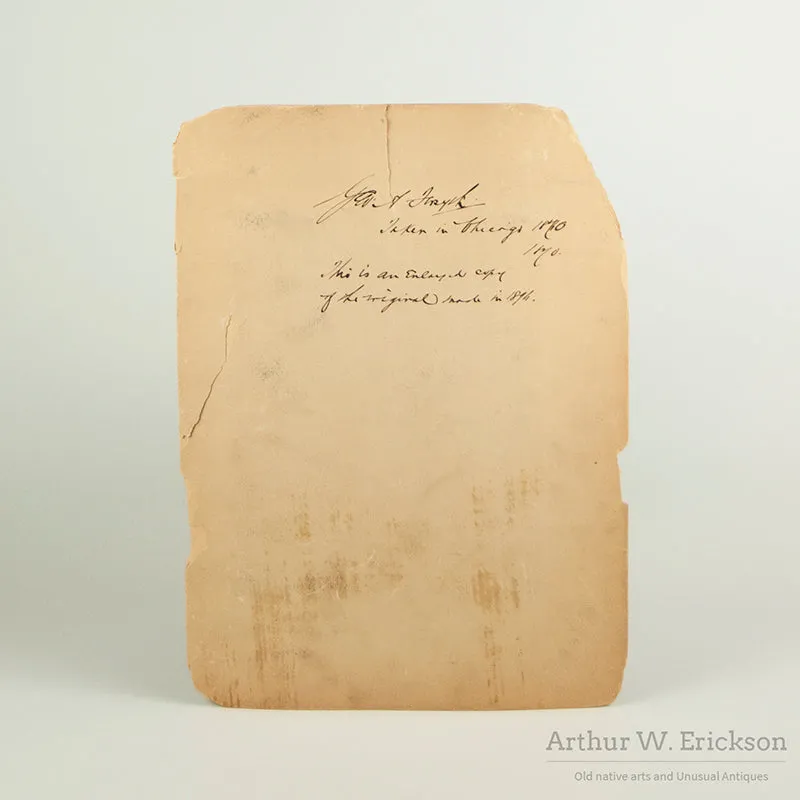 Geo. A. Forsyth.
Taken in Chicago 1870
1870.
This is an Enlarged copy
of the original made in 1896.
Arthur W. Erickson
Old native arts and Unusual Antiques